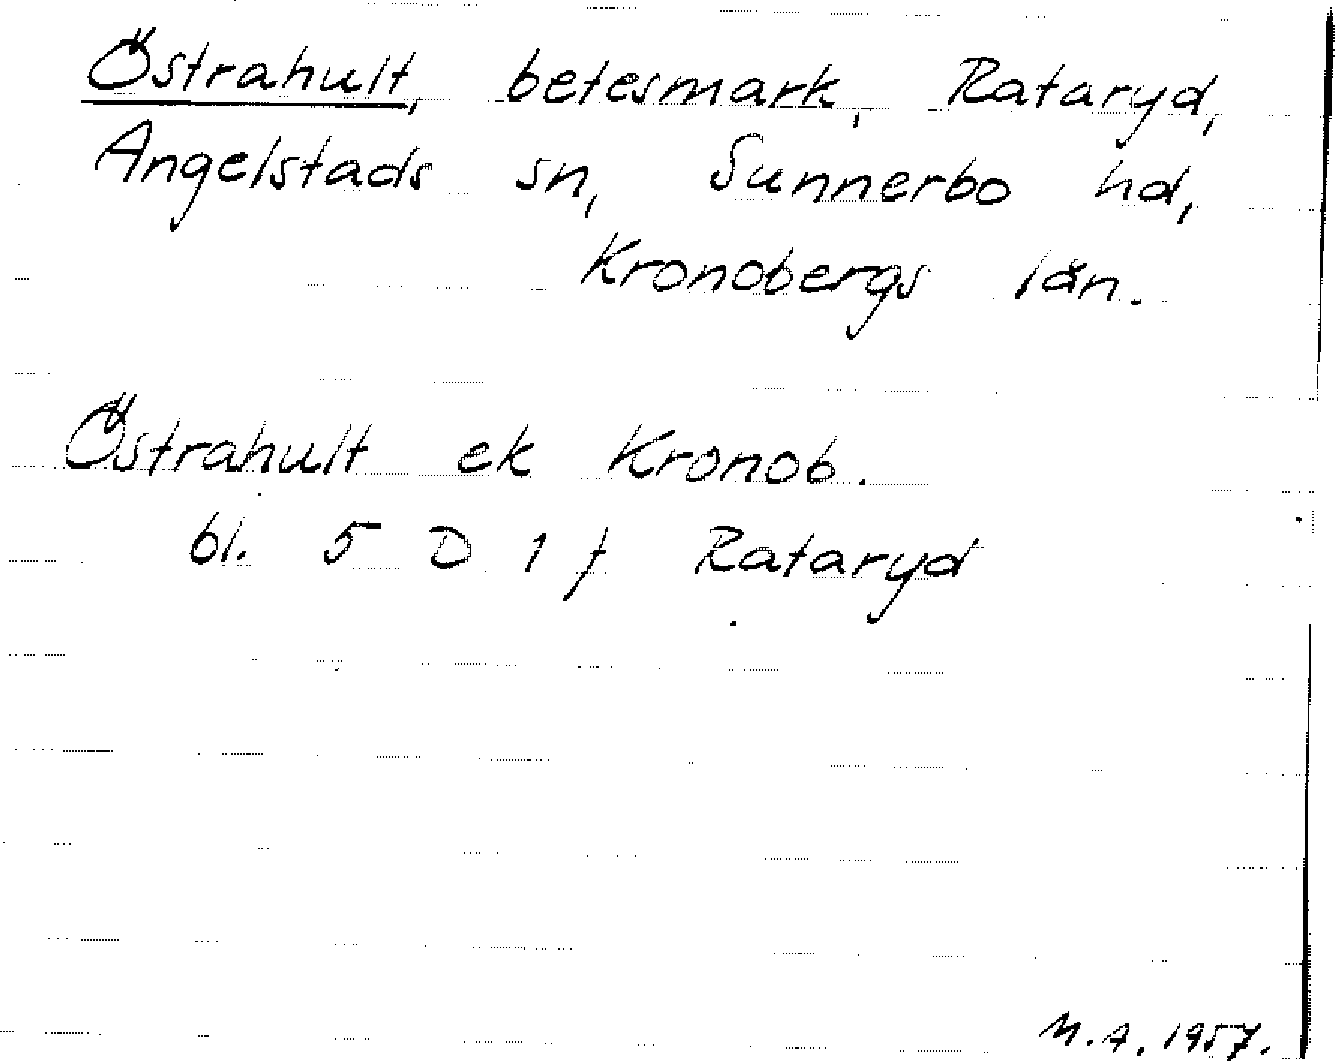 Östrahult, betesmark, Rataryd,
Angelstads sn, Sunnerbo hd,
Kronobergs län.
Östrahult ek Kronob.
bl. 5 D 1 f Rataryd
M.A. 1957.